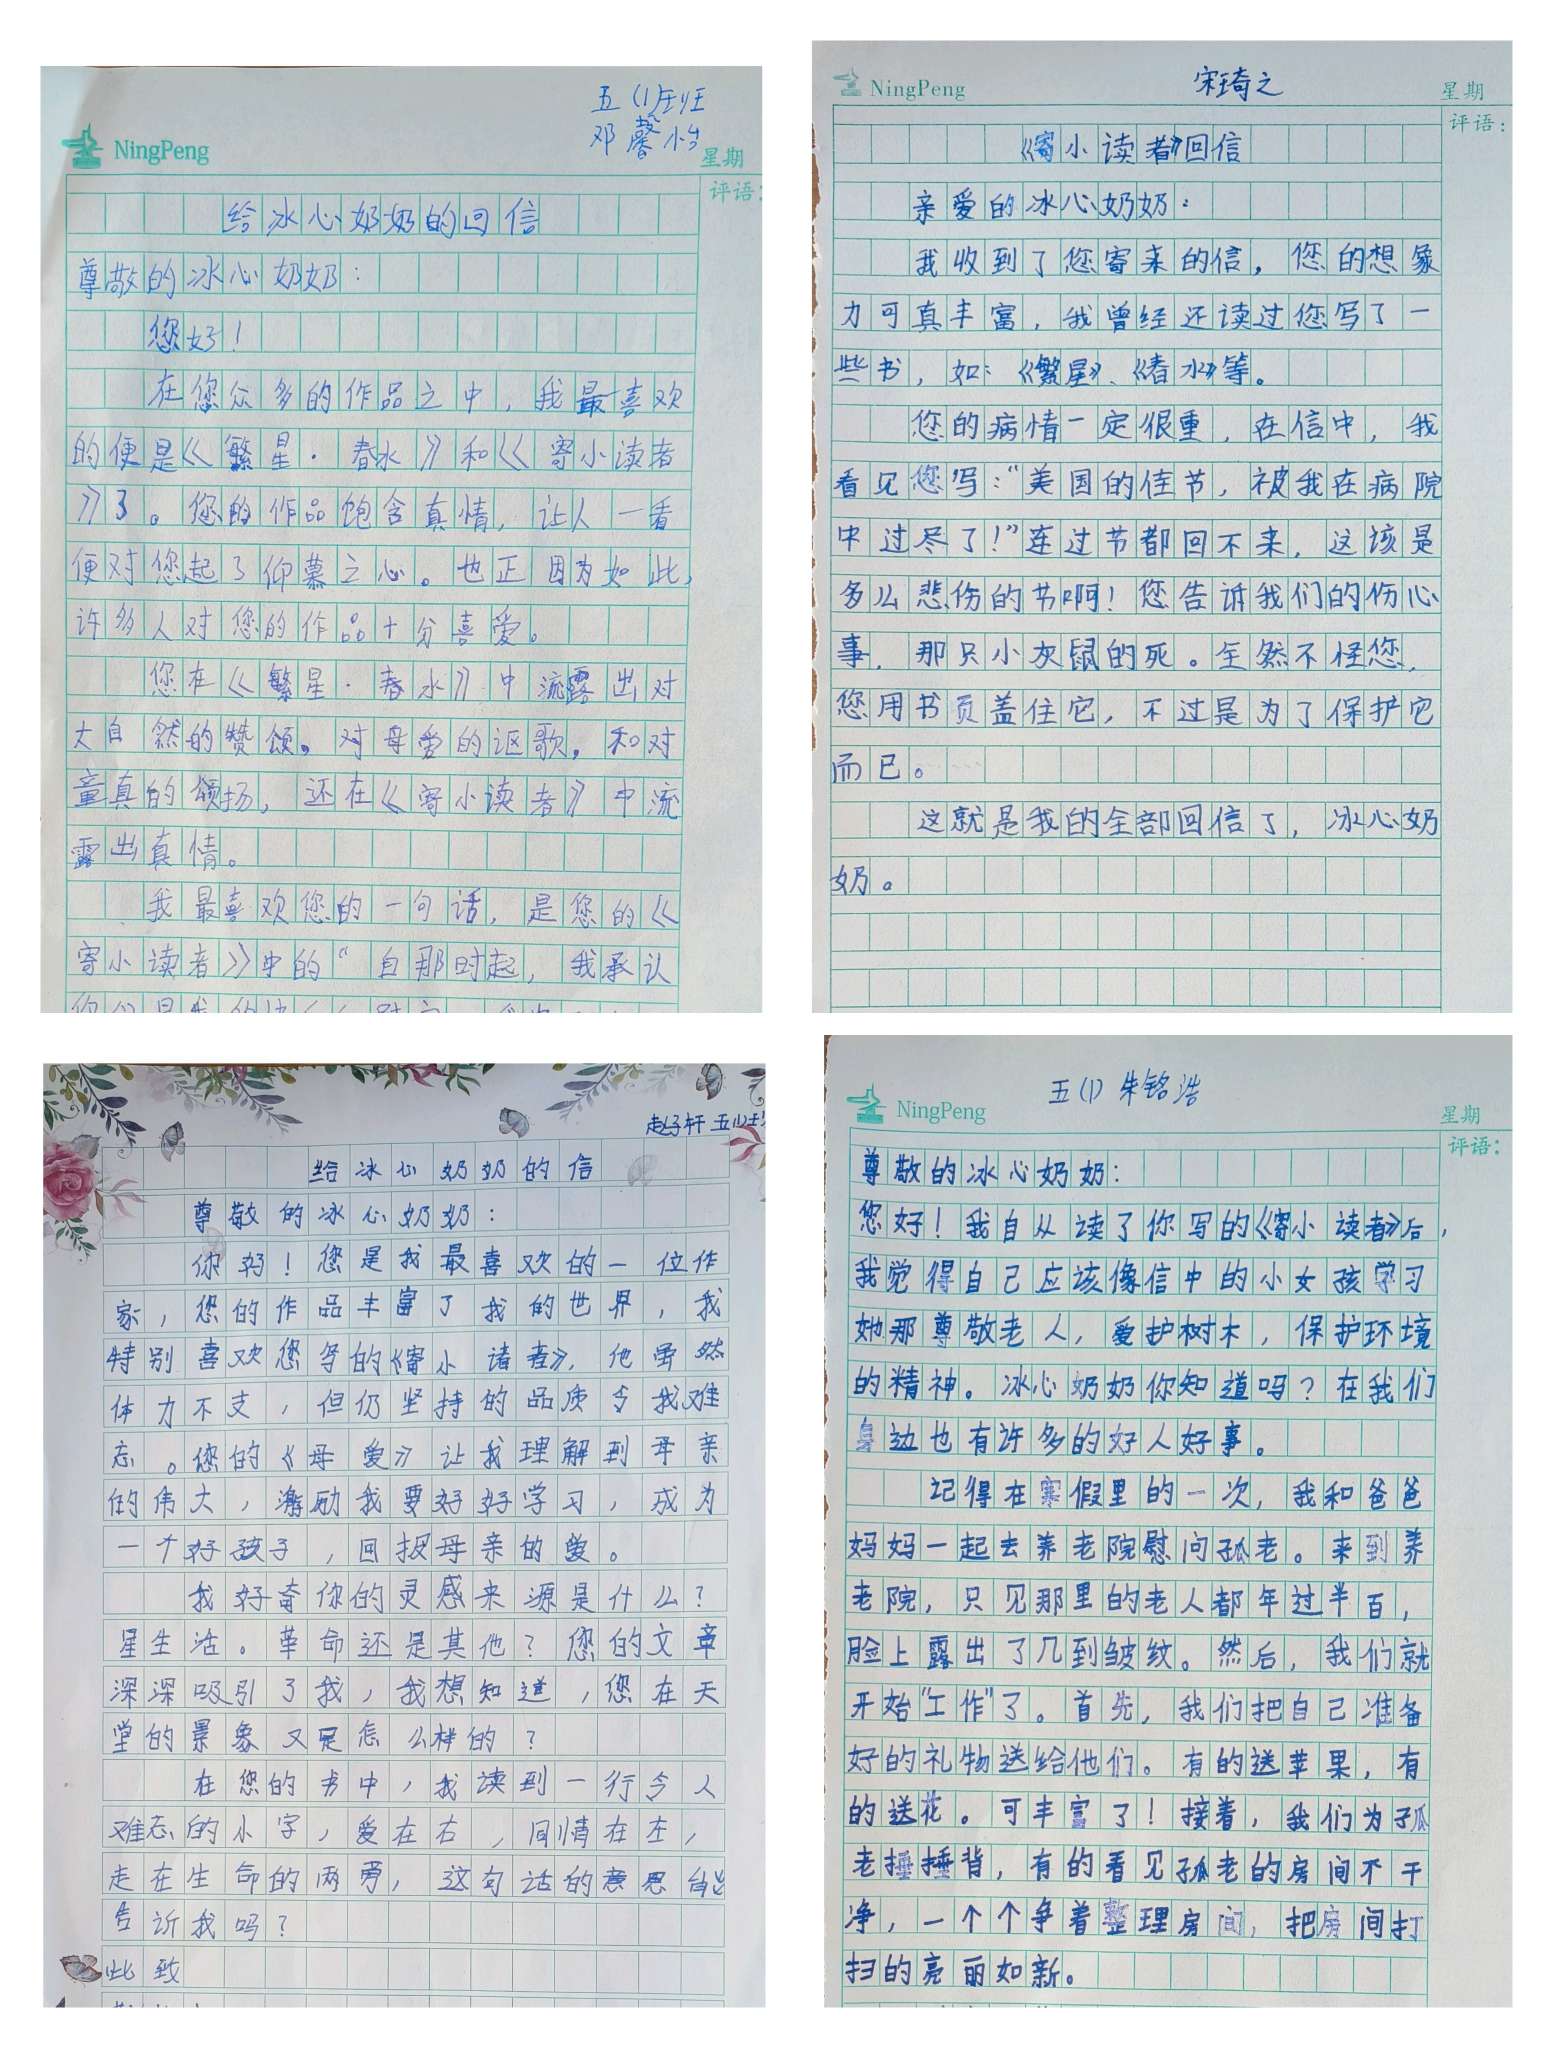 五(1)班
邓馨怡
NingPeng
星期
评语:
给冰心奶奶的回信
尊敬的冰心奶奶:
您好!
在您众多的作品之中,我最喜欢
的便是《繁星·春水》和《寄小读者
》了。您的作品饱含真情,让人一看
便对您起了仰慕之心。也正因为如此,
许多人对您的作品十分喜爱。
您在《繁星·春水》中流露出对
大自然的赞颂。对母爱的讴歌。和对
童真的颂扬,还在《寄小读者》中流
露出真情。
我最喜欢您的一句话,是您的《
寄小读者》中的“自那时起,我承认
宋琦之
NingPeng
星期
评语:
《寄小读者》回信
亲爱的冰心奶奶:
我收到了您寄来的信,您的想象
力可真丰富,我曾经还读过您写了一
些书,如:《繁星》、《春水》等。
您的病情一定很重,在信中,我
看见您写:“美国的佳节,被我在病院
中过尽了!”连过节都回不来,这该是
多么悲伤的书啊!您告诉我们的伤心
事,那只小灰鼠的死。全然不怪您,
您用书页盖住它,不过是为了保护它
而已。
这就是我的全部回信了,冰心奶
奶。
轩 五(1)班
给冰心奶奶的信
尊敬的冰心奶奶:
你好!您是我最喜欢的一位作
家,您的作品丰富了我的世界,我
特别喜欢您写的《寄小读者》,他虽然
体力不支,但仍坚持的品质令我难
忘。您的《母爱》让我理解到母亲
的伟大,激励我要好好学习,成为
一个好孩子,回报母亲的爱。
我好奇你的灵感来源是什么?
是生活。革命还是其他?您的文章
深深吸引了我,我想知道,您在天
堂的景象又是怎么样的?
在您的书中,我读到一行令人
难忘的小字,爱在右,同情在左,
走在生命的两旁,这句话的意思能
告诉我吗?
此致
五(1) 朱铭浩
NingPeng
星期
评语:
尊敬的冰心奶奶:
您好!我自从读了你写的《寄小读者》后,
我觉得自己应该像信中的小女孩学习
她那尊敬老人,爱护树木,保护环境
的精神。冰心奶奶你知道吗?在我们
身边也有许多的好人好事。
记得在寒假里的一次,我和爸爸
妈妈一起去养老院慰问孤老。来到养
老院,只见那里的老人都年过半百,
脸上露出了几到皱纹。然后,我们就
开始“工作”了。首先,我们把自己准备
好的礼物送给他们。有的送苹果,有
的送花。可丰富了!接着,我们为孤
老捶捶背,有的看见孤老的房间不干
净,一个个争着整理房间,把房间打
扫的亮丽如新。